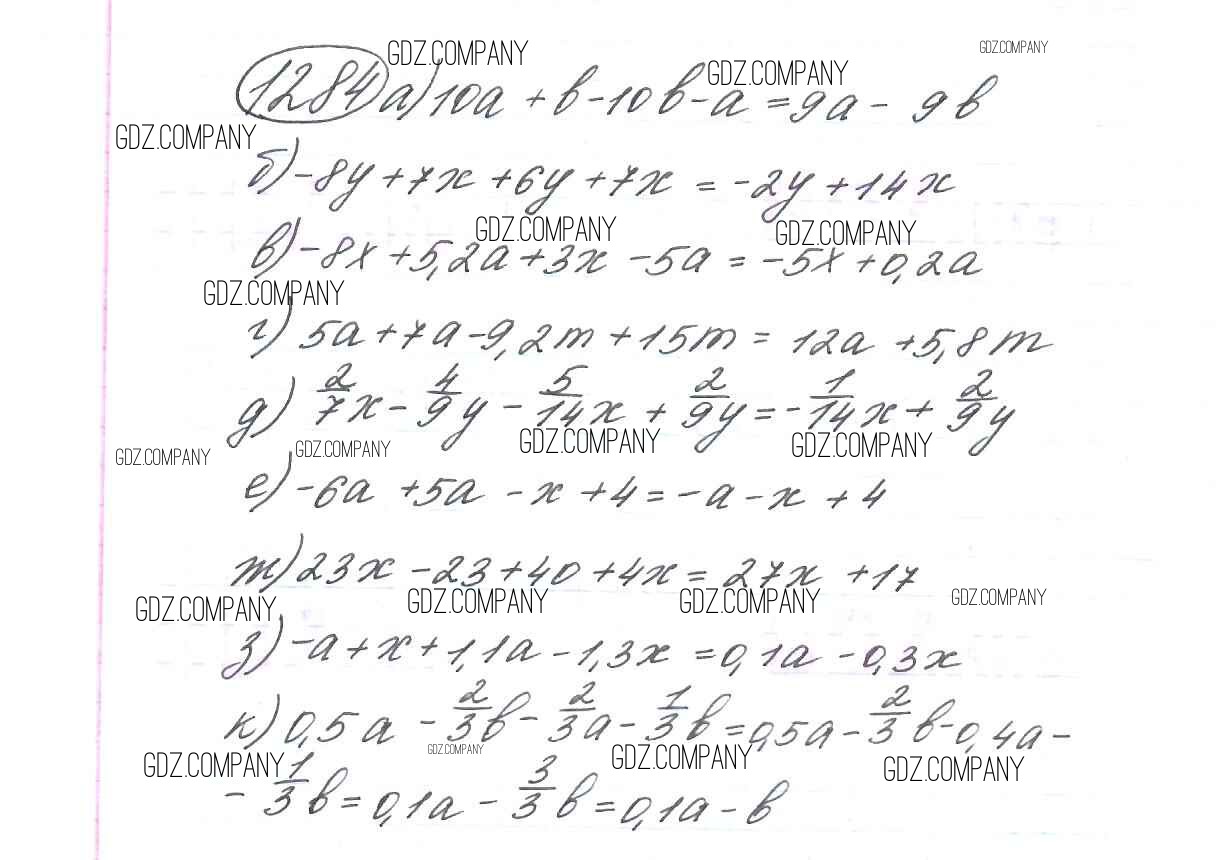 GDZ.COMPANY GDZ.COMPANY
1284 а) 10a + b - 10b - a = 9a - 9b
GDZ.COMPANY
GDZ.COMPANY
б) -8y + 7x + 6y + 7x = -2y + 14x
GDZ.COMPANY GDZ.COMPANY
в) -8x + 5,2a + 3x - 5a = -5x + 0,2a
GDZ.COMPANY
г) 5a + 7a - 9,2m + 15m = 12a + 5,8m
д) 2/7x - 4/9y - 5/14x + 2/9y = -1/14x + 2/9y
GDZ.COMPANY GDZ.COMPANY GDZ.COMPANY GDZ.COMPANY
е) -6a + 5a - x + 4 = -a - x + 4
ж) 23x - 23 + 40 + 4x = 27x + 17
GDZ.COMPANY GDZ.COMPANY GDZ.COMPANY GDZ.COMPANY
з) -a + x + 1,1a - 1,3x = 0,1a - 0,3x
к) 0,5a - 2/3b - 2/3a - 1/3b = 0,5a - 2/3b - 0,4a -
GDZ.COMPANY GDZ.COMPANY GDZ.COMPANY GDZ.COMPANY
- 1/3b = 0,1a - 3/3b = 0,1a - b